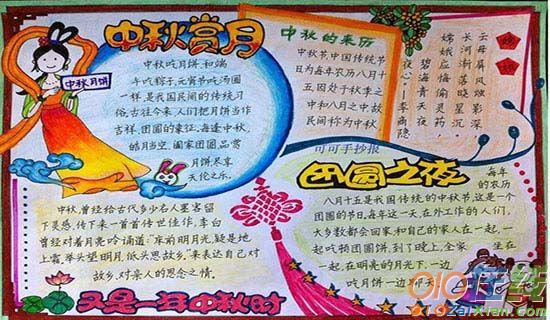 中秋赏月
中秋月饼
中秋吃月饼,和端
午吃粽子、元宵节吃汤圆
一样,是我国民间的传统习
俗。古往今来,人们把月饼当作
吉祥、团圆的象征。每逢中秋,
皓月当空,阖家团圆,品赏
月饼尽享
天伦之乐。
中秋的来历
中秋节,中国传统节
日为每年农历八月十
五因处于秋季之
中和八月之中故
民间称为中秋
嫦娥
云母屏风烛影深
长河渐落晓星沉
嫦娥应悔偷灵药
碧海青天夜
夜心—李商隐
可可手抄报
团圆之夜
每年
的农历
八月十五是我国传统的中秋节,这是一个
团圆的节日。每年这一天,在外工作的人们,
大多数都会回家,和自己的家人在一起,一
起吃顿团圆饼,到了晚上,全家 坐在
一起,在明亮的月光下,一边
吃月饼一边聊天
中秋,曾经给古代多少名人墨客留
下灵感,传下来一首首传世佳作,李白
曾经对着月亮吟诵道:"床前明月光,疑是地
上霜,举头望明月,低头思故乡。"来表达自己对
故乡,对亲人的思念之情。
又是一年中秋时